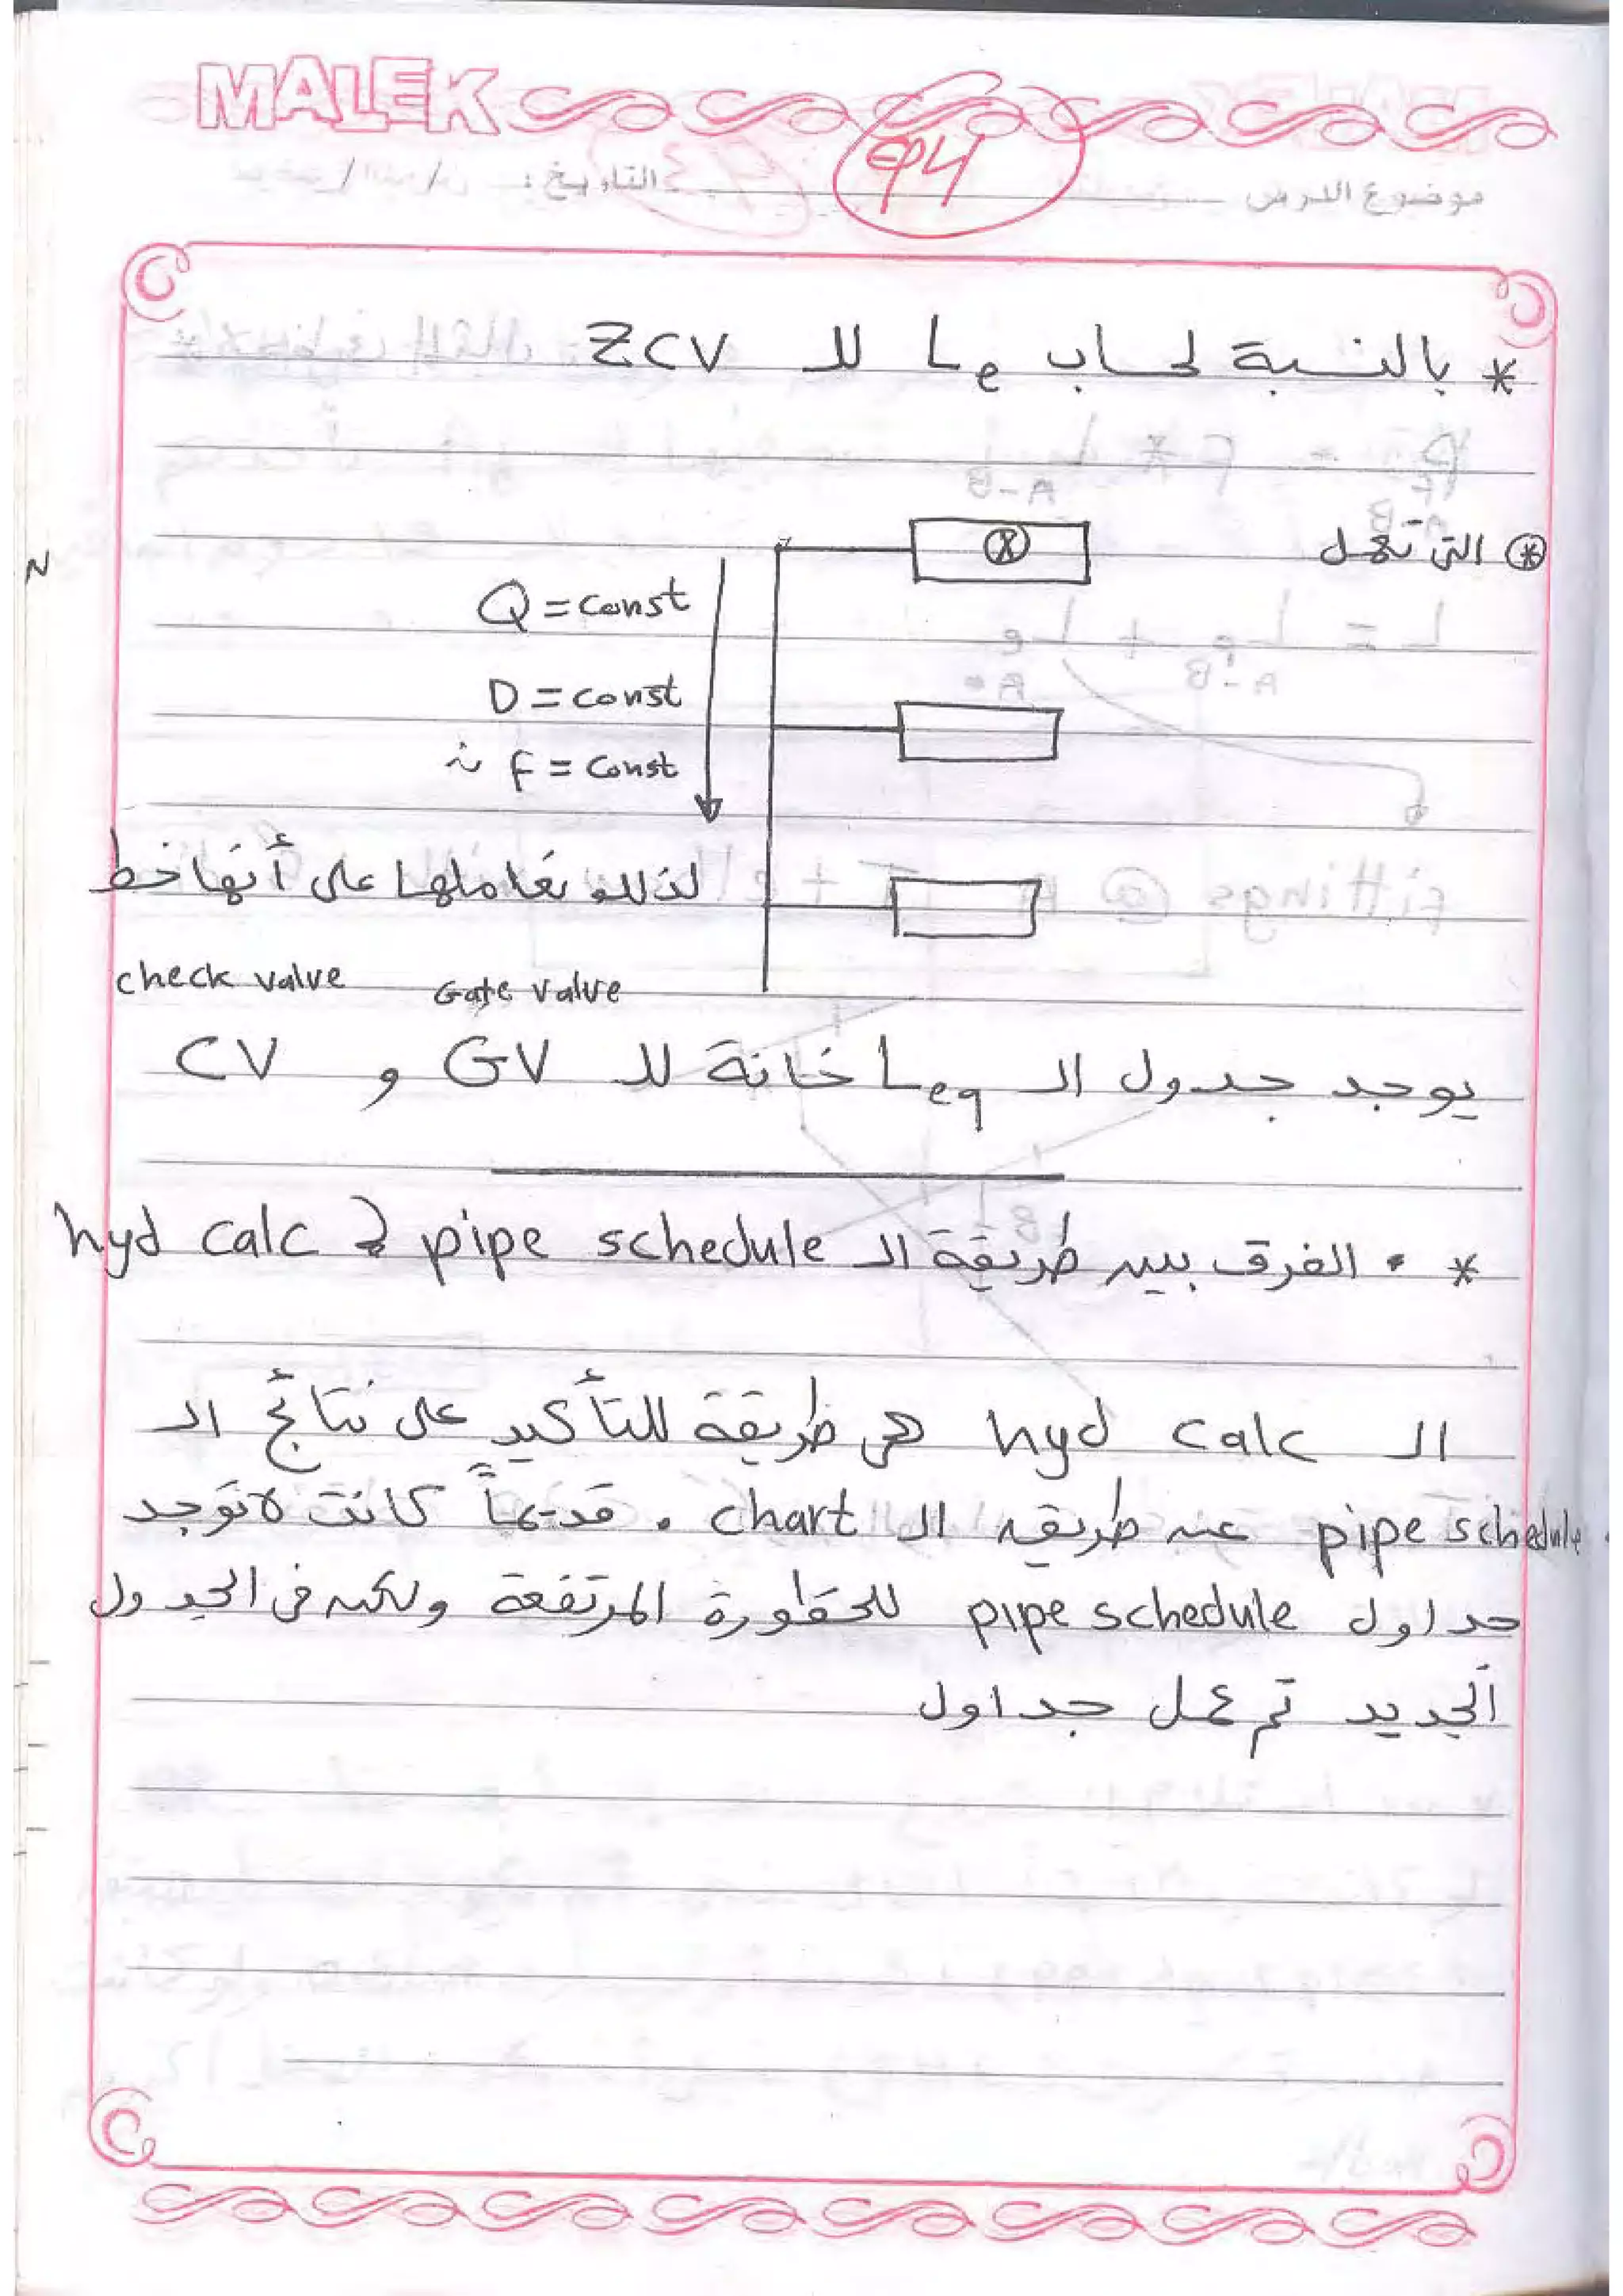 MALEK
موضوع الدرس
التاريخ : / /
94
* بالنسبة لحساب Le للـ ZCV
⊛ التى تعمل
Q = const
D = const
∴ F = const
لذلك نعاملها على أنها خط
check valve Gate valve
يوجد جدول الـ Leq خانة للـ GV و CV
* • الفرق بين طريقة الـ pipe schedule & hyd calc
الـ hyd calc هى طريقة للتأكيد على نتائج الـ
pipe schedule عن طريق الـ chart . قديماً كانت لا توجد
جداول pipe schedule للخطورة المرتفعة ولكن فى الجدول
الجديد تم عمل جداول